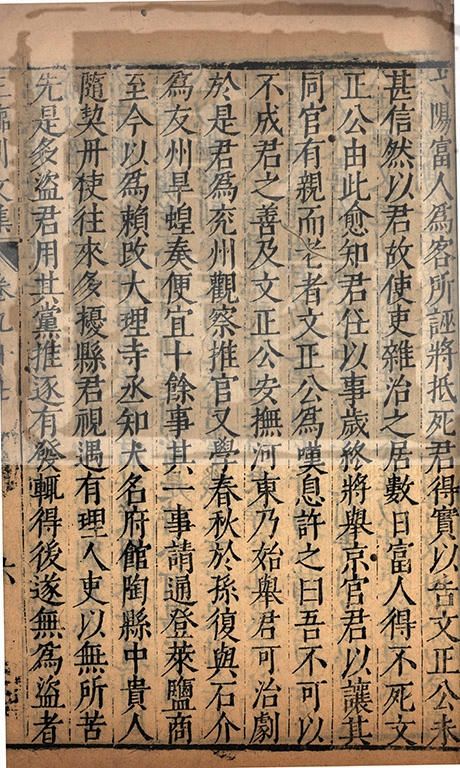 陽富人為客所誣將抵死君得實以告文正公未
甚信然以君故使吏雜治之居數日富人得不死文
正公由此愈知君任以事歲終將舉京官君以讓其
同官有親而老者文正公為嘆息許之曰吾不可以
不成君之善及文正公安撫河東乃始舉君可治劇
於是君為兖州觀察推官又學春秋於孫復與石介
為友州旱蝗奏便宜十餘事其一事請通登萊鹽商
至今以為賴改大理寺丞知大名府館陶縣中貴人
隨契丹使往來多擾縣君視遇有理人吏以無所苦
先是多盜君用其黨推逐有發輒得後遂無為盜者
王臨川文集 卷九十 六